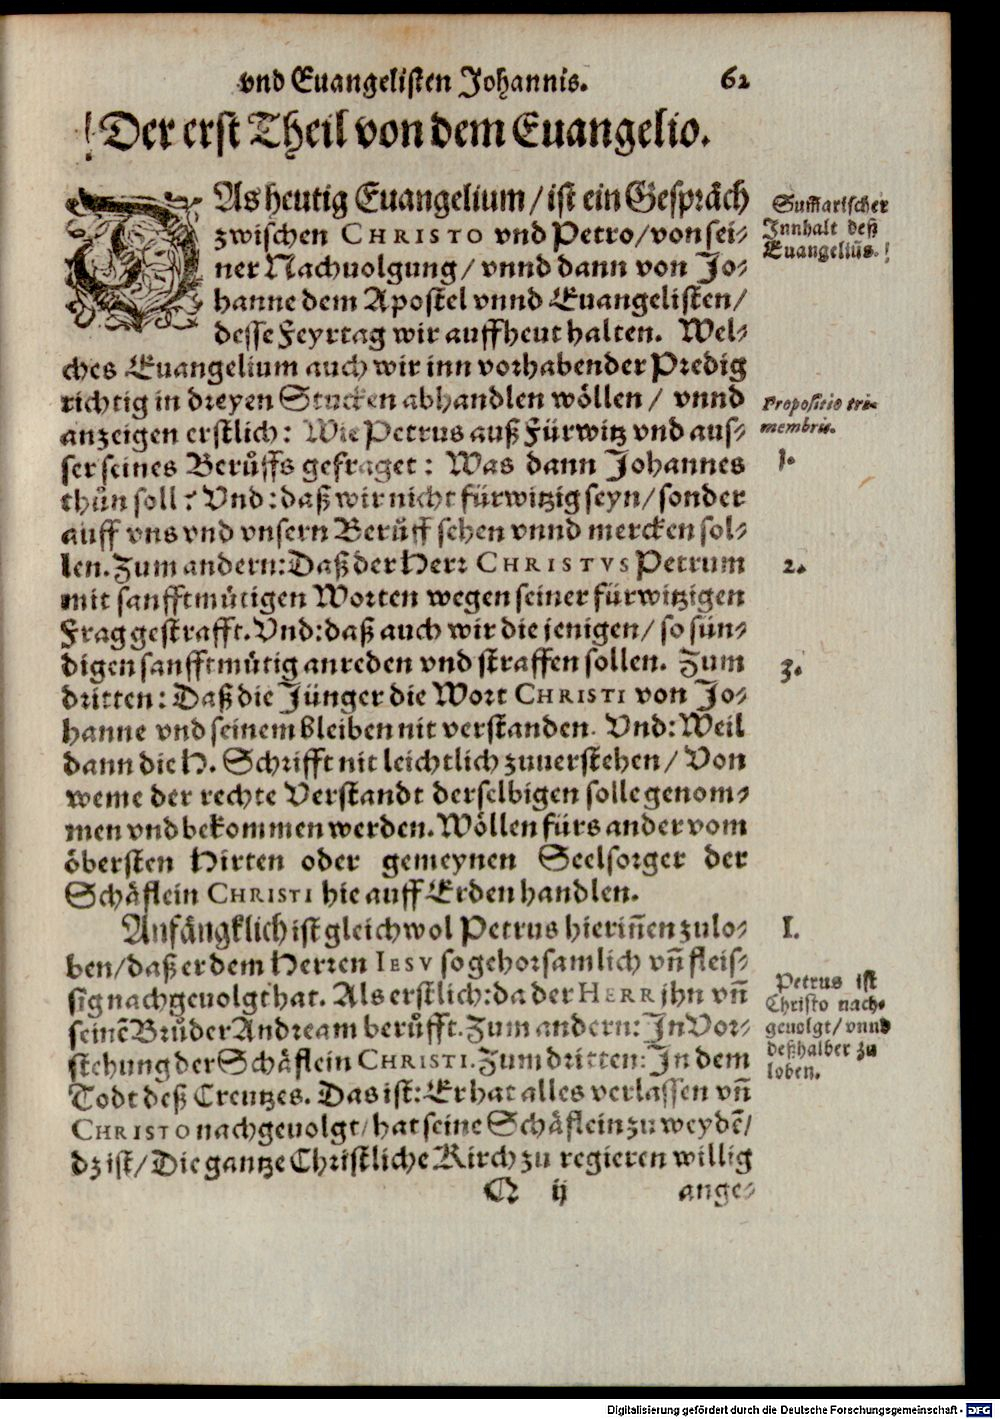 vnd Euangelisten Johannis. 62
Der erst Theil von dem Euangelio.
DAs heutig Euangelium / ist ein Gespräch
zwischen CHRISTO vnd Petro / von sei-
ner Nachuolgung / vnnd dann von Jo-
hanne dem Apostel vnnd Euangelisten /
desse Feyrtag wir auff heut halten. Wel-
ches Euangelium auch wir inn vorhabender Predig
richtig in dreyen Stucken abhandlen wöllen / vnnd
anzeigen erstlich: Wie Petrus auß Fürwitz vnd aus-
ser seines Berůffs gefraget: Was dann Johannes
thůn soll? Vnd: daß wir nicht fürwitzig seyn / sonder
auff vns vnd vnsern Berůff sehen vnnd mercken sol-
len. Zum andern: Daß der Herr CHRISTVS Petrum
mit sanfftmütigen Worten wegen seiner fürwitzigen
Frag gestrafft. Vnd: daß auch wir die jenigen / so sün-
digen sanfftmütig anreden vnd straffen sollen. Zum
dritten: Daß die Jünger die Wort CHRISTI von Jo-
hanne vnd seinem bleiben nit verstanden. Vnd: Weil
dann die H. Schrifft nit leichtlich zuuerstehen / Von
weme der rechte Verstandt derselbigen solle genom-
men vnd bekommen werden. Wöllen fürs ander vom
öbersten Hirten oder gemeynen Seelsorger der
Schäflein CHRISTI hie auff Erden handlen.
Anfängklich ist gleichwol Petrus hierin̄en zulo-
ben / daß er dem Herren IESV so gehorsamlich vn̄ fleis-
sig nachgeuolgt hat. Als erstlich: da der HERR jhn vn̄
seinē Brůder Andream berůfft. Zum andern: In Vor-
stehung der Schäflein CHRISTI. Zum dritten: In dem
Todt deß Creutzes. Das ist: Er hat alles verlassen vn̄
CHRISTO nachgeuolgt / hat seine Schäflein zu weydē /
dz ist / Die gantze Christliche Kirch zu regieren willig
Q ij ange-
Sum̄arischer
Innhalt deß
Euangeliūs.
Propositio tri-
membris.
1.
2.
3.
I.
Petrus ist
Christo nach-
geuolgt / vnnd
deßhalber zu
loben.
Digitalisierung gefördert durch die Deutsche Forschungsgemeinschaft - DFG